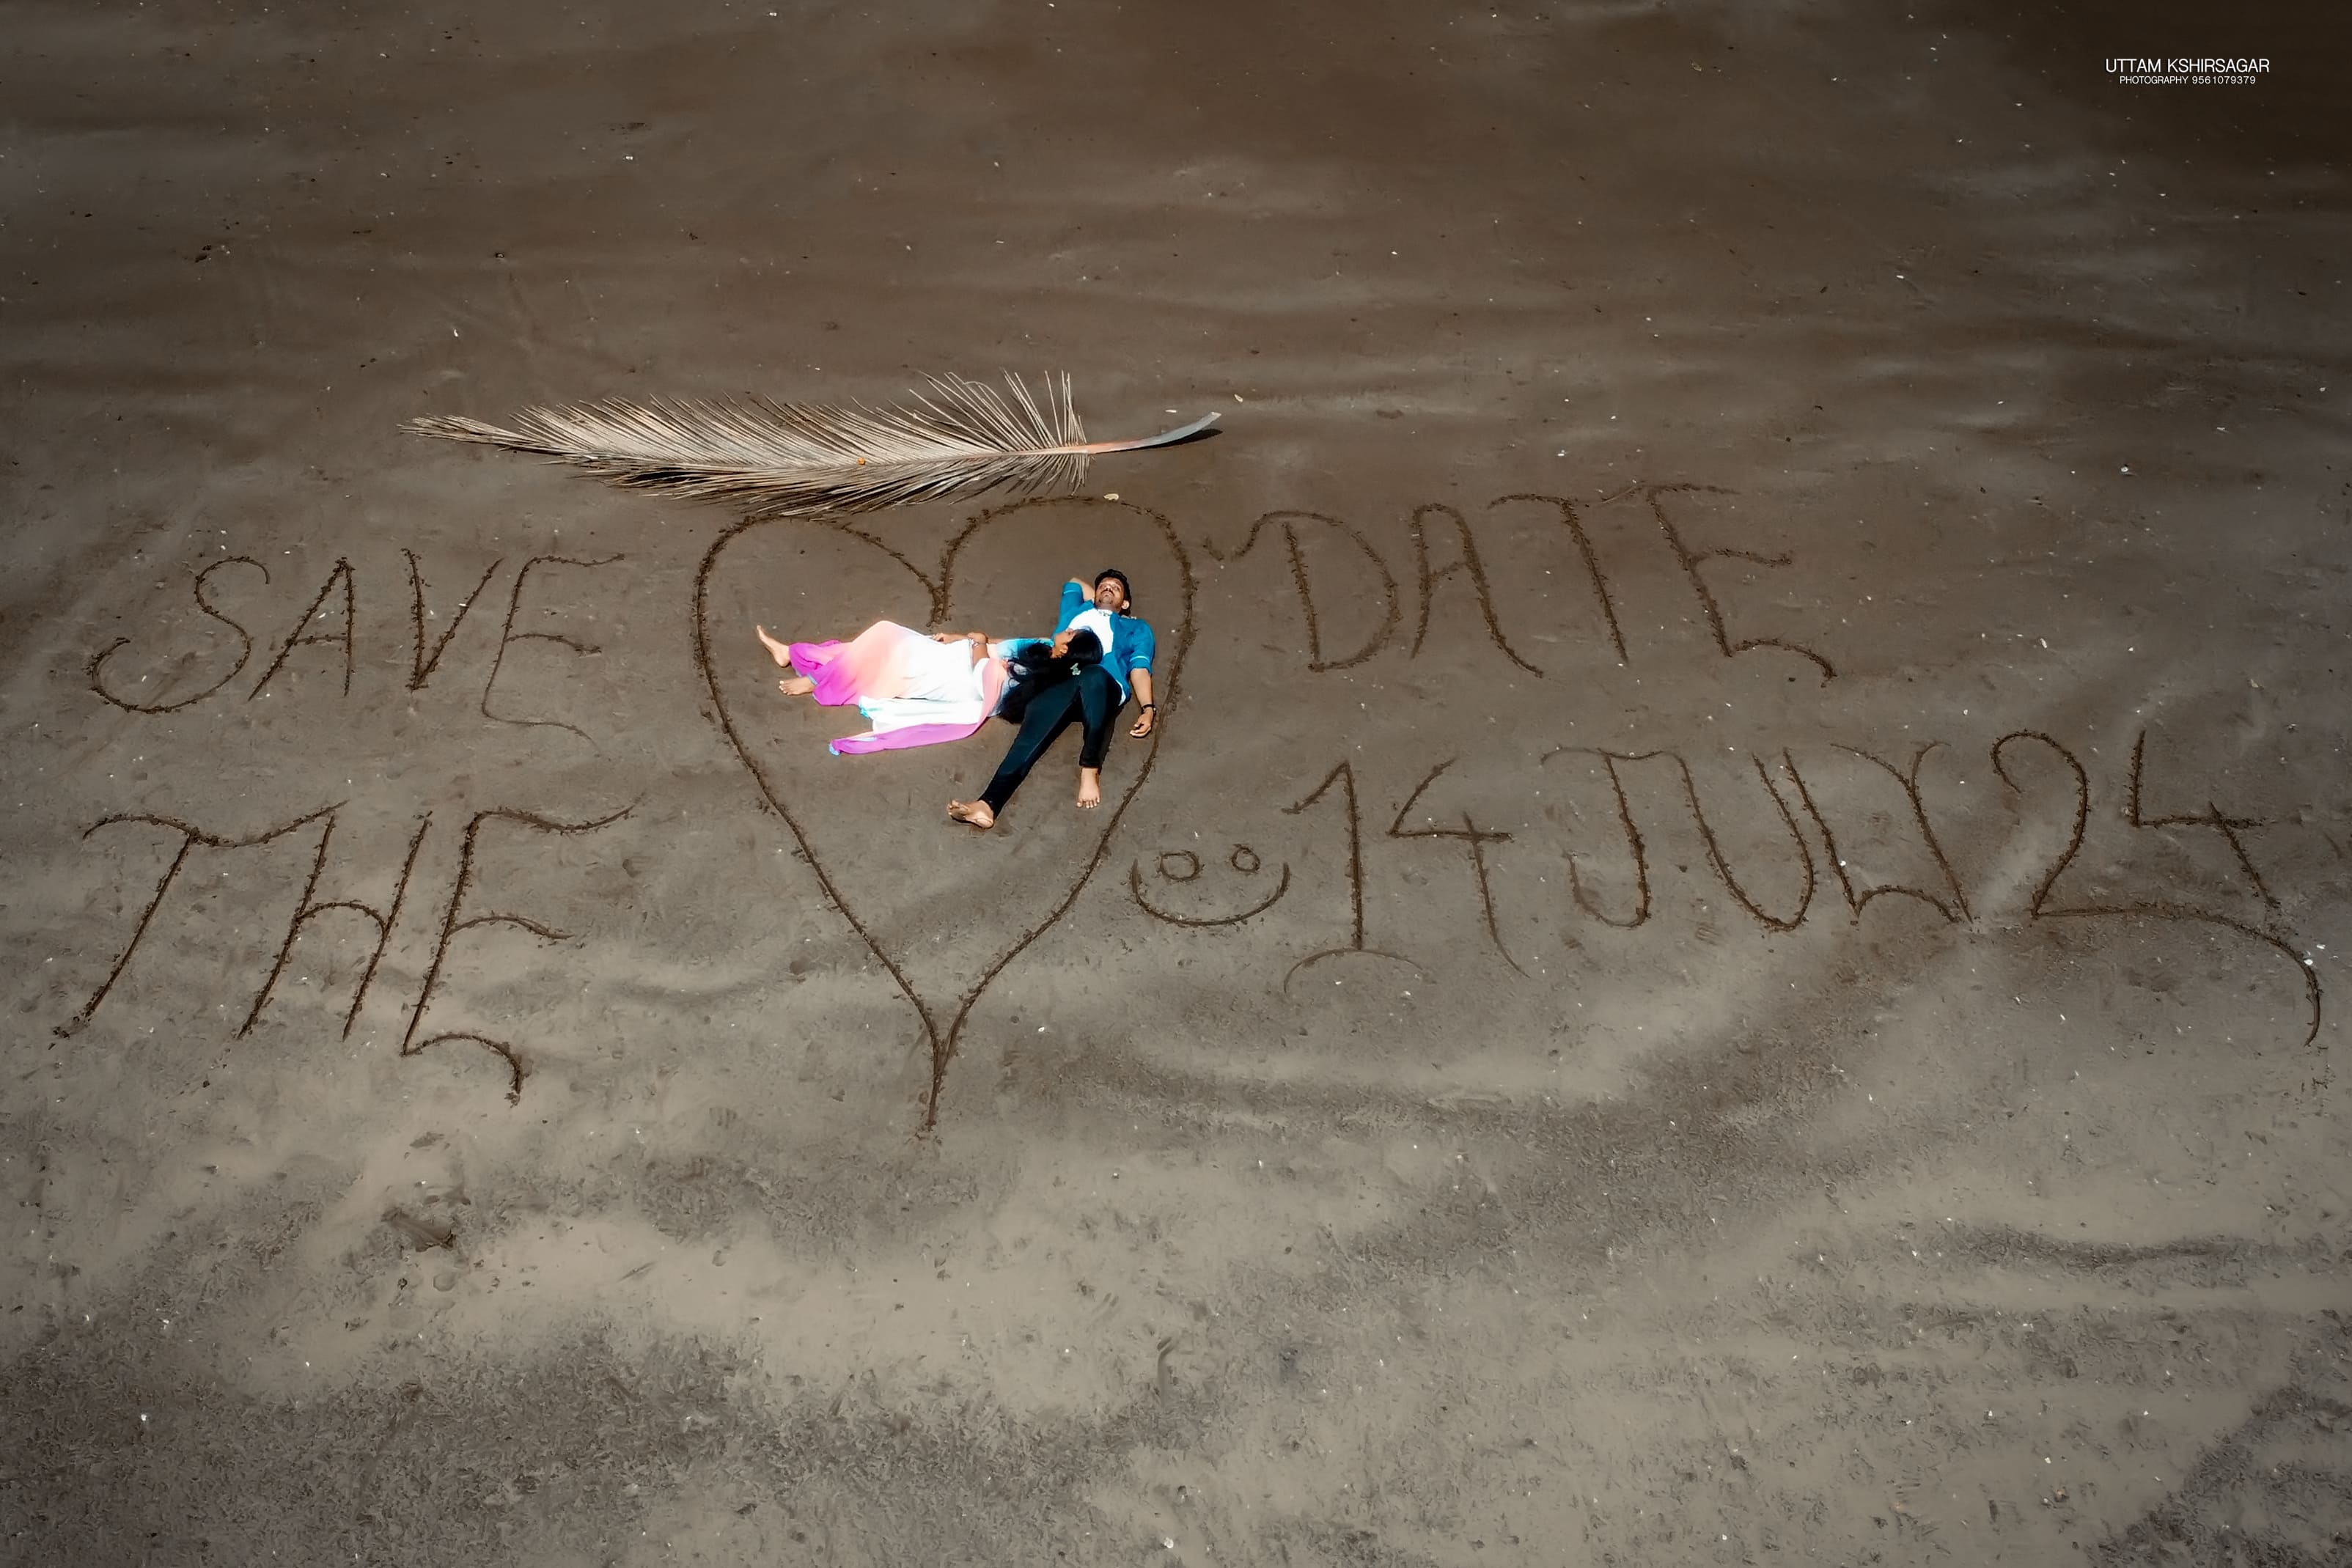 UTTAM KSHIRSAGAR
PHOTOGRAPHY 9561079379
SAVE
THE
DATE
14 JULY 24